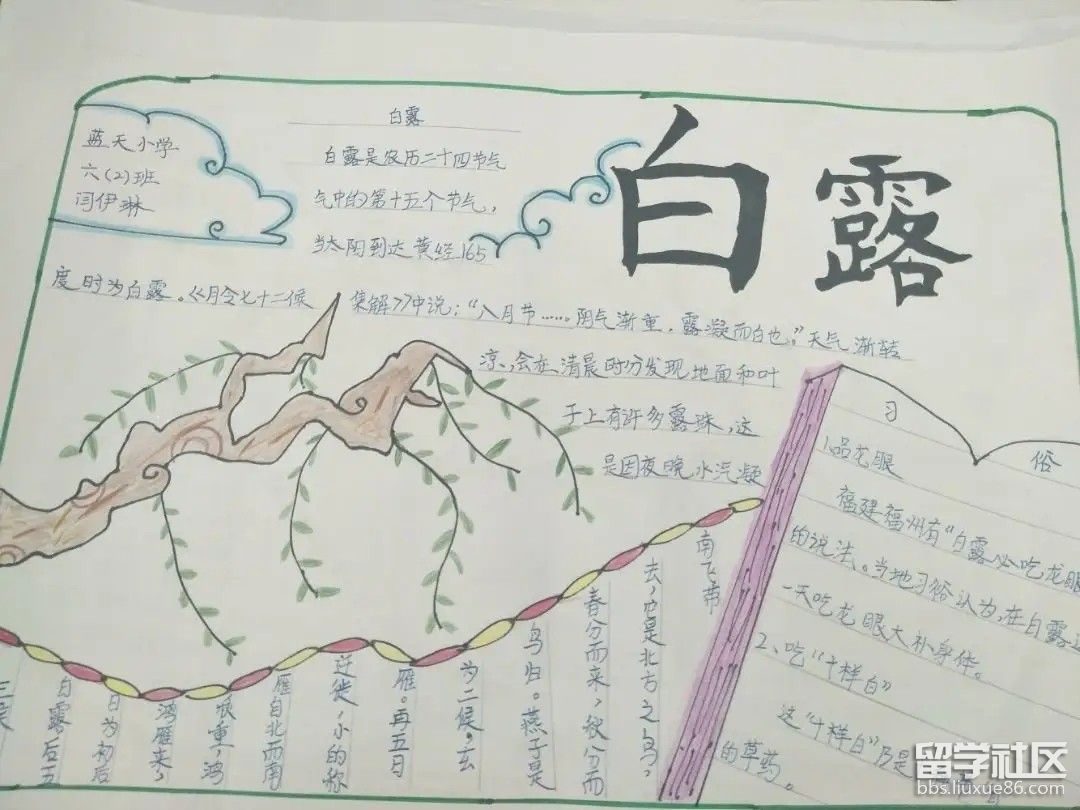 白露
蓝天小学
六(2)班
闫伊琳
白露
白露是农历二十四节气
气中的第十五个节气，
当太阳到达黄经165
度时为白露。《月令七十二候
集解》中说：“八月节……阴气渐重，露凝而白也。”天气渐转
凉，会在清晨时分发现地面和叶
子上有许多露珠，这
是因夜晚水汽凝
习俗
1.品龙眼
福建福州有“白露必吃龙眼
的说法。当地习俗认为，在白露这
一天吃龙眼大补身体。
2、吃“十样白”
这“十样白”乃是
的草药。
南飞带
去，它是北方之鸟，
春分而来，秋分而
鸟归。燕子是
为二候。玄
雁。再五日
迁徙，小的称
雁自北而南
很重，鸿
鸿雁来，
日为初后
白露后五
三候
留学社区
bbs.liuxue86.com